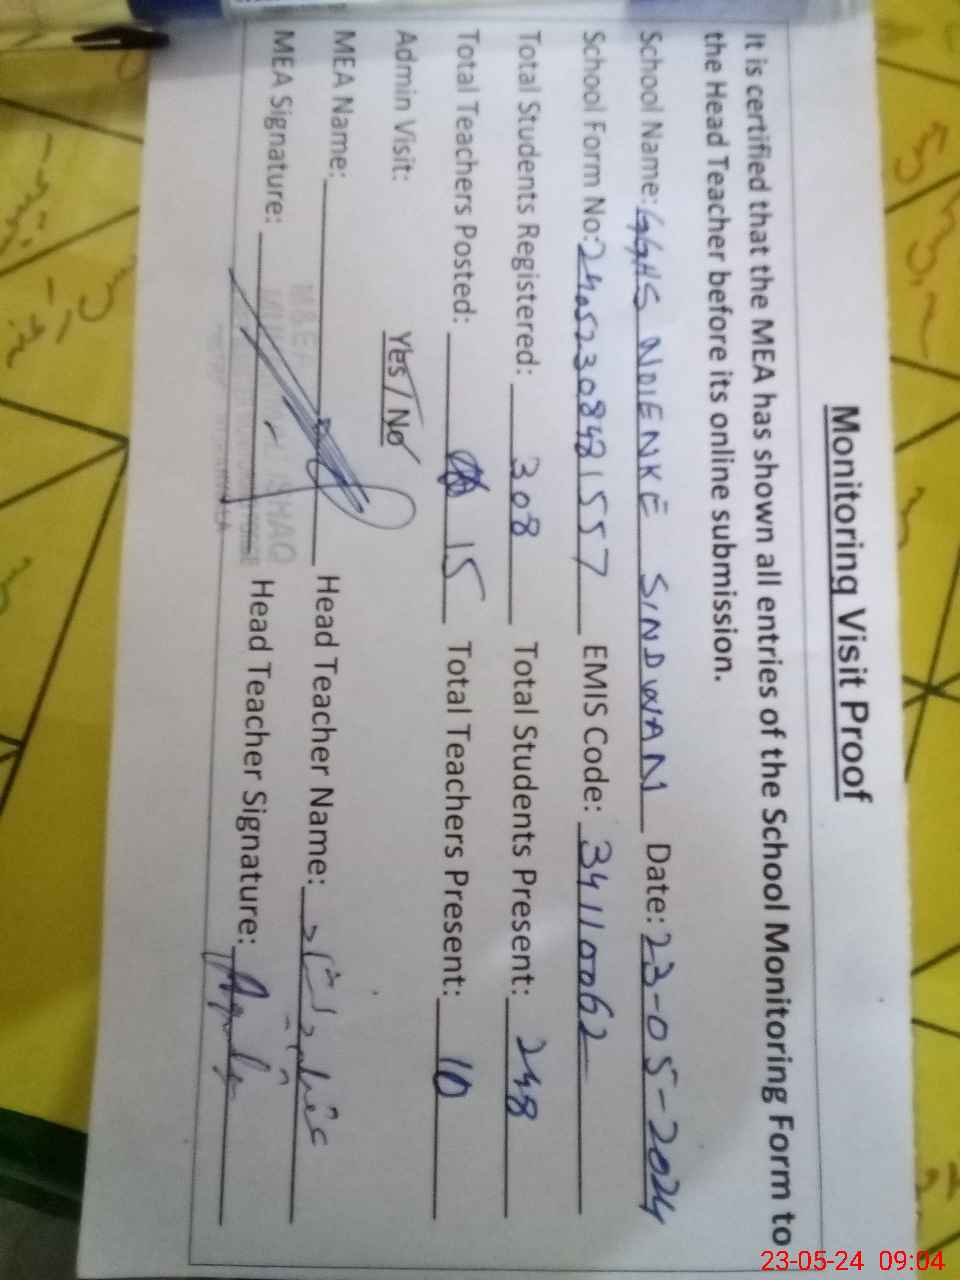 Monitoring Visit Proof
It is certified that the MEA has shown all entries of the School Monitoring Form to
the Head Teacher before its online submission.
School Name: GGHS NDIENKE SINDWAN Date: 23-05-2024
School Form No: 24052308481557 EMIS Code: 34110062
Total Students Registered: 308 Total Students Present: 248
Total Teachers Posted: 15 Total Teachers Present: 10
Admin Visit: Yes / No
MEA Name: Head Teacher Name:
MEA Signature: Head Teacher Signature:
ISHAQ
23-05-24 09:04